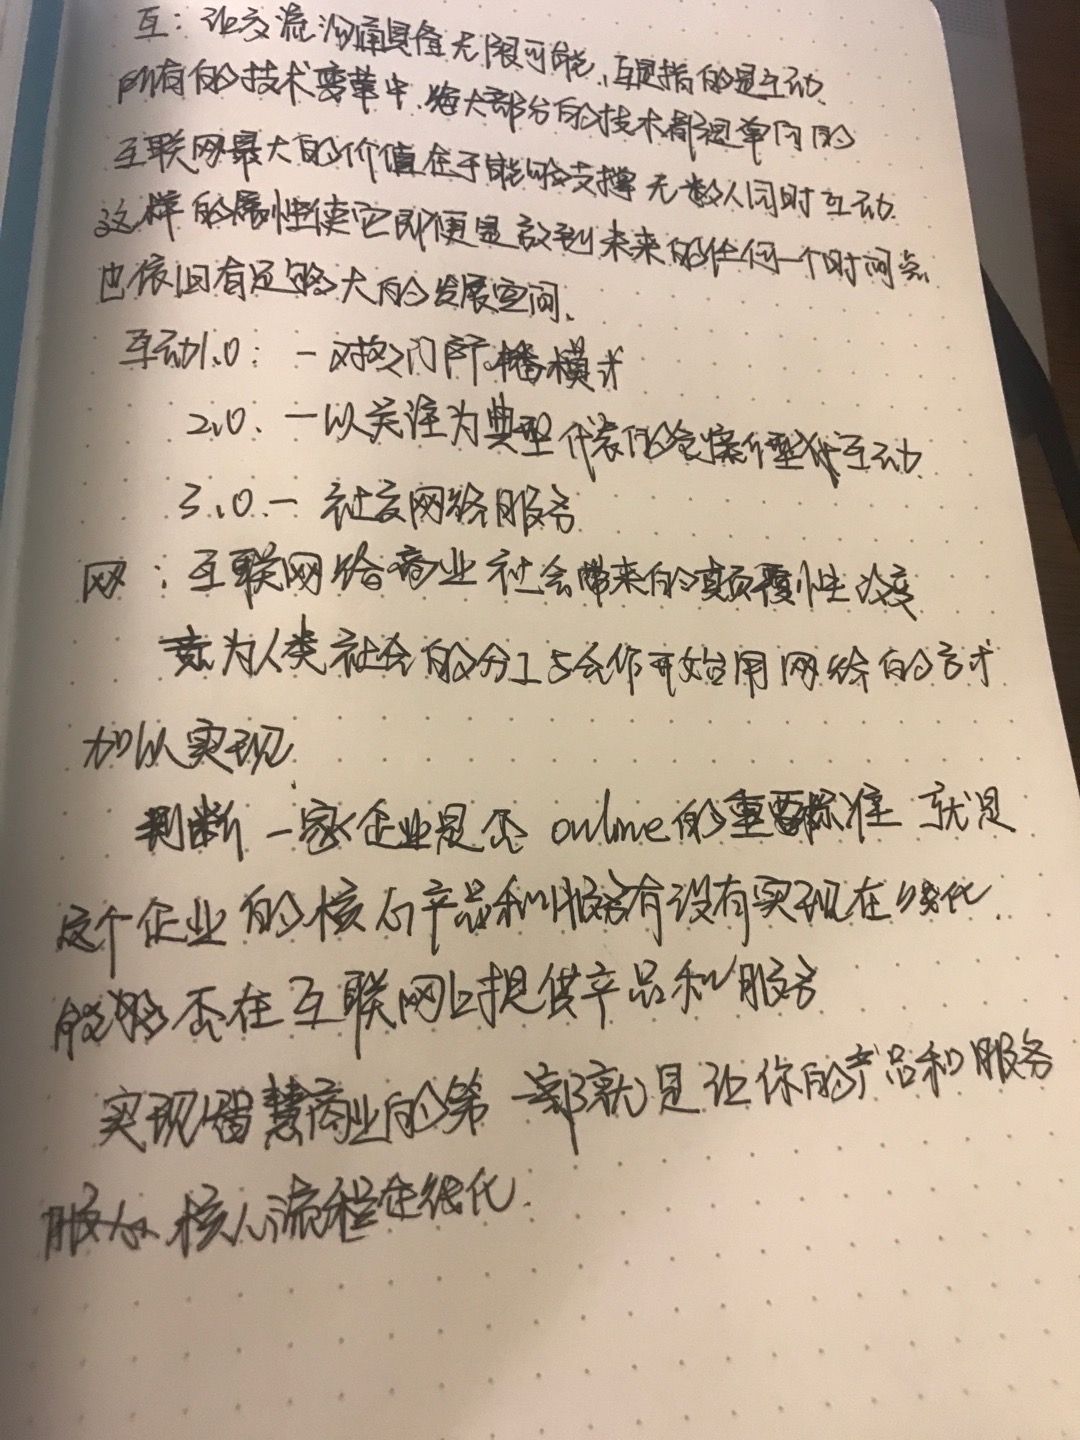 互：让交流沟通具备无限可能、互是指的是互动、
所有的技术变革中、绝大部分的技术都是单向的
互联网最大的价值在于能够支撑无数人同时互动、
这样的属性使它即便是放到未来的任何一个时间点
也依旧有足够大的发展空间、
互动1.0：一对多门户广播模式
2.0、一以关注为典型代表的互动
3.0.一社交网络服务
网：互联网给商业社会带来的颠覆性改变
为人类社会的分工与合作开始用网络的方式
加以实现
判断一家企业是否online的重要标准就是
这个企业的核心产品和服务有没有实现在线化、
能够否在互联网上提供产品和服务
实现智慧商业的第一部就是让你的产品和服务
核心流程在线化、